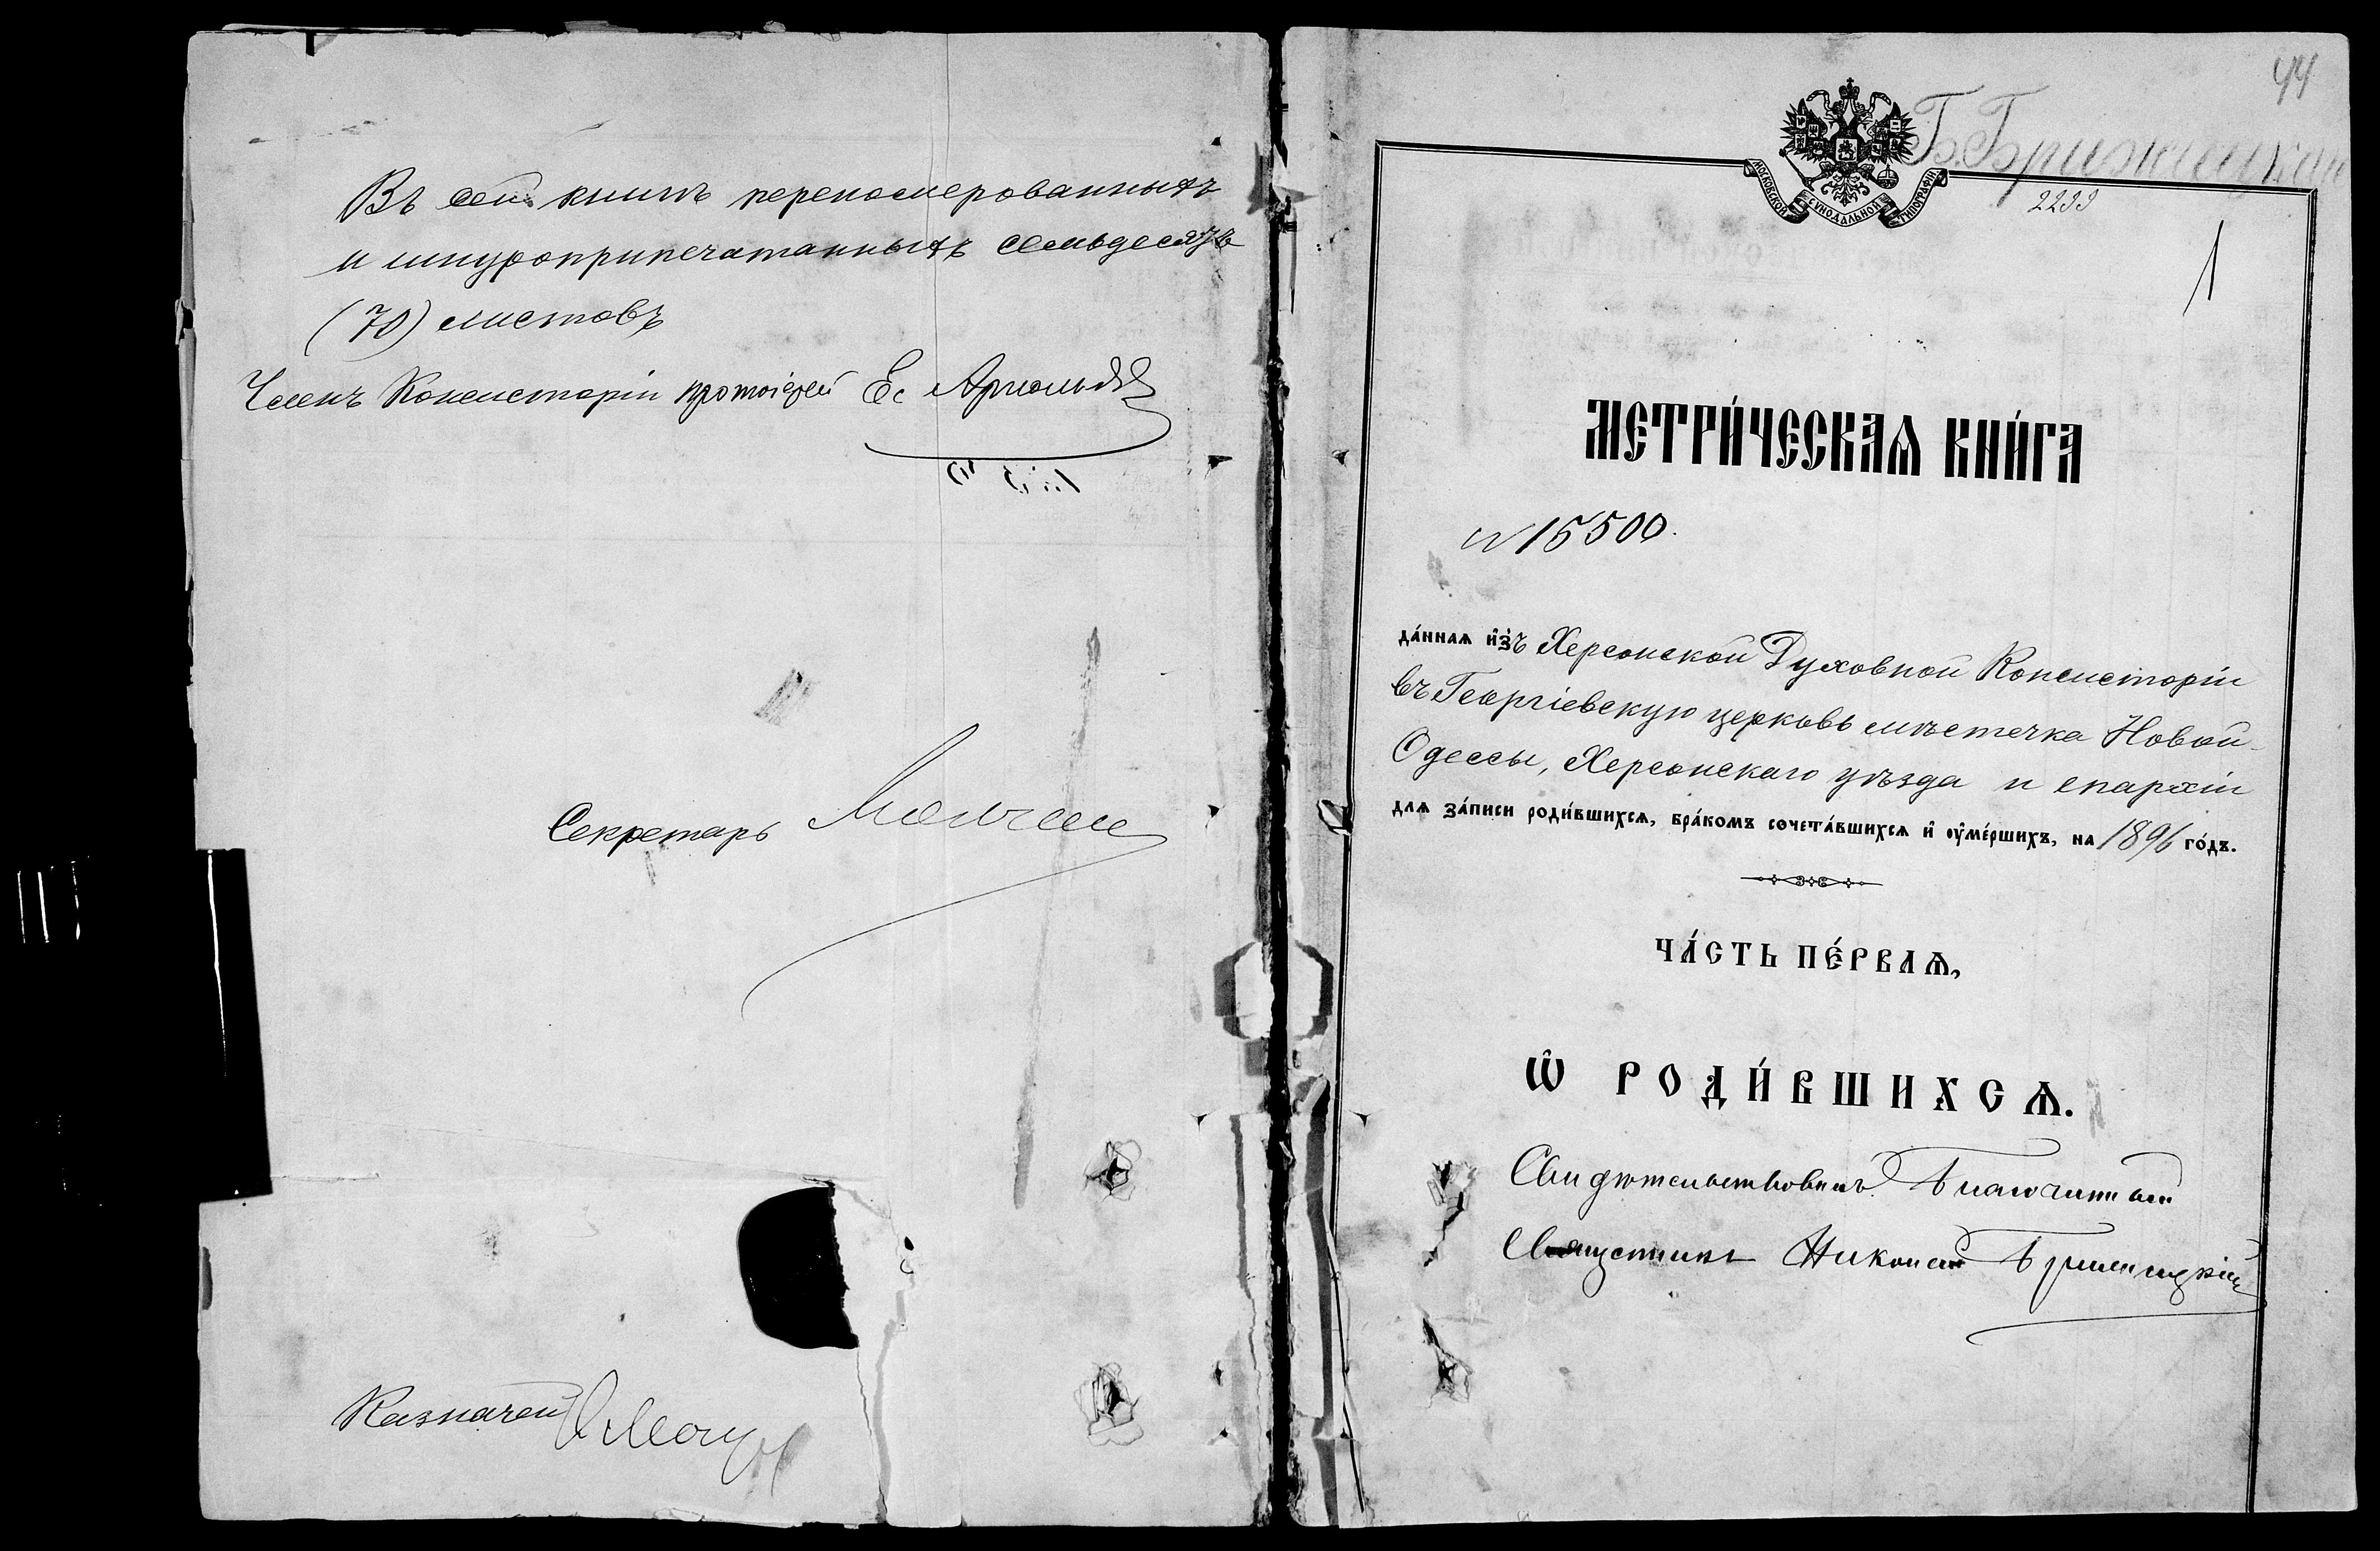 Въ сей книгѣ переномерованныхъ
и шнуроприпечатанныхъ семьдесятъ
(70) листовъ
Членъ Консисторіи протоіерей Ес Арнольдъ
Секретарь
Казначей
44
Б. Брижицкій
2299
1
МОСКОВСКОЙ СУНОДАЛЬНОЙ ТИПОГРАФІИ
МЕТРИ́ЧЕСКАѦ КНИ́ГА
N 15500.
да́ннаѧ и҆зъ Херсонской Духовной Консисторіи
въ Георгіевскую церковь мѣстечка Новой-
Одессы, Херсонскаго уѣзда и епархіи
длѧ за́писи роди́вшихсѧ, бра́комъ сочета́вшихсѧ и҆ ᲂу҆ме́ршихъ, на 1896 го́дъ.
ЧА́СТЬ ПЕ́РВАѦ,
Ѡ҆ РОДИ́ВШИХСѦ.
Свидѣтельствовалъ Благочинный
Священникъ Николай Брижицкій